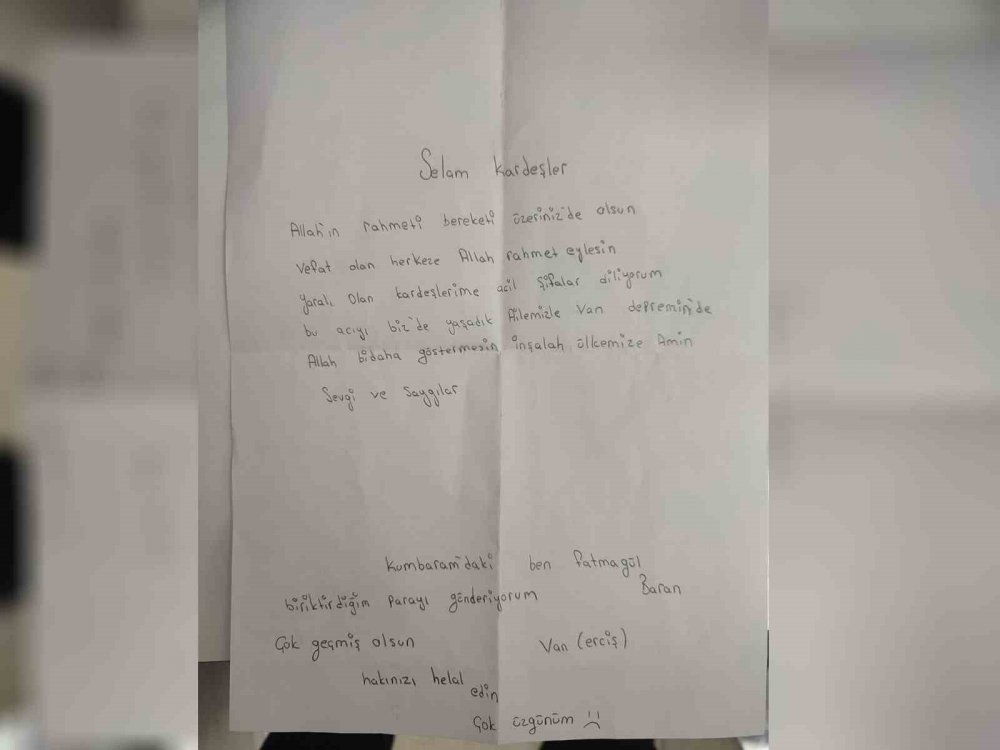 Selam kardeşler
Allah'ın rahmeti bereketi üzeriniz'de olsun
Vefat olan herkeze Allah rahmet eylesin
yaralı olan kardeşlerime acil şifalar diliyorum
bu acıyı biz'de yaşadık Ailemizle Van depremin'de
Allah bidaha göstermesin inşalah ülkemize Amin
Sevgi ve Saygılar
Kumbaram'daki ben fatmagül
Baran
biriktirdiğim parayı gönderiyorum
Çok geçmiş olsun Van (erciş)
hakınızı helal
edin
Çok üzgünüm :(